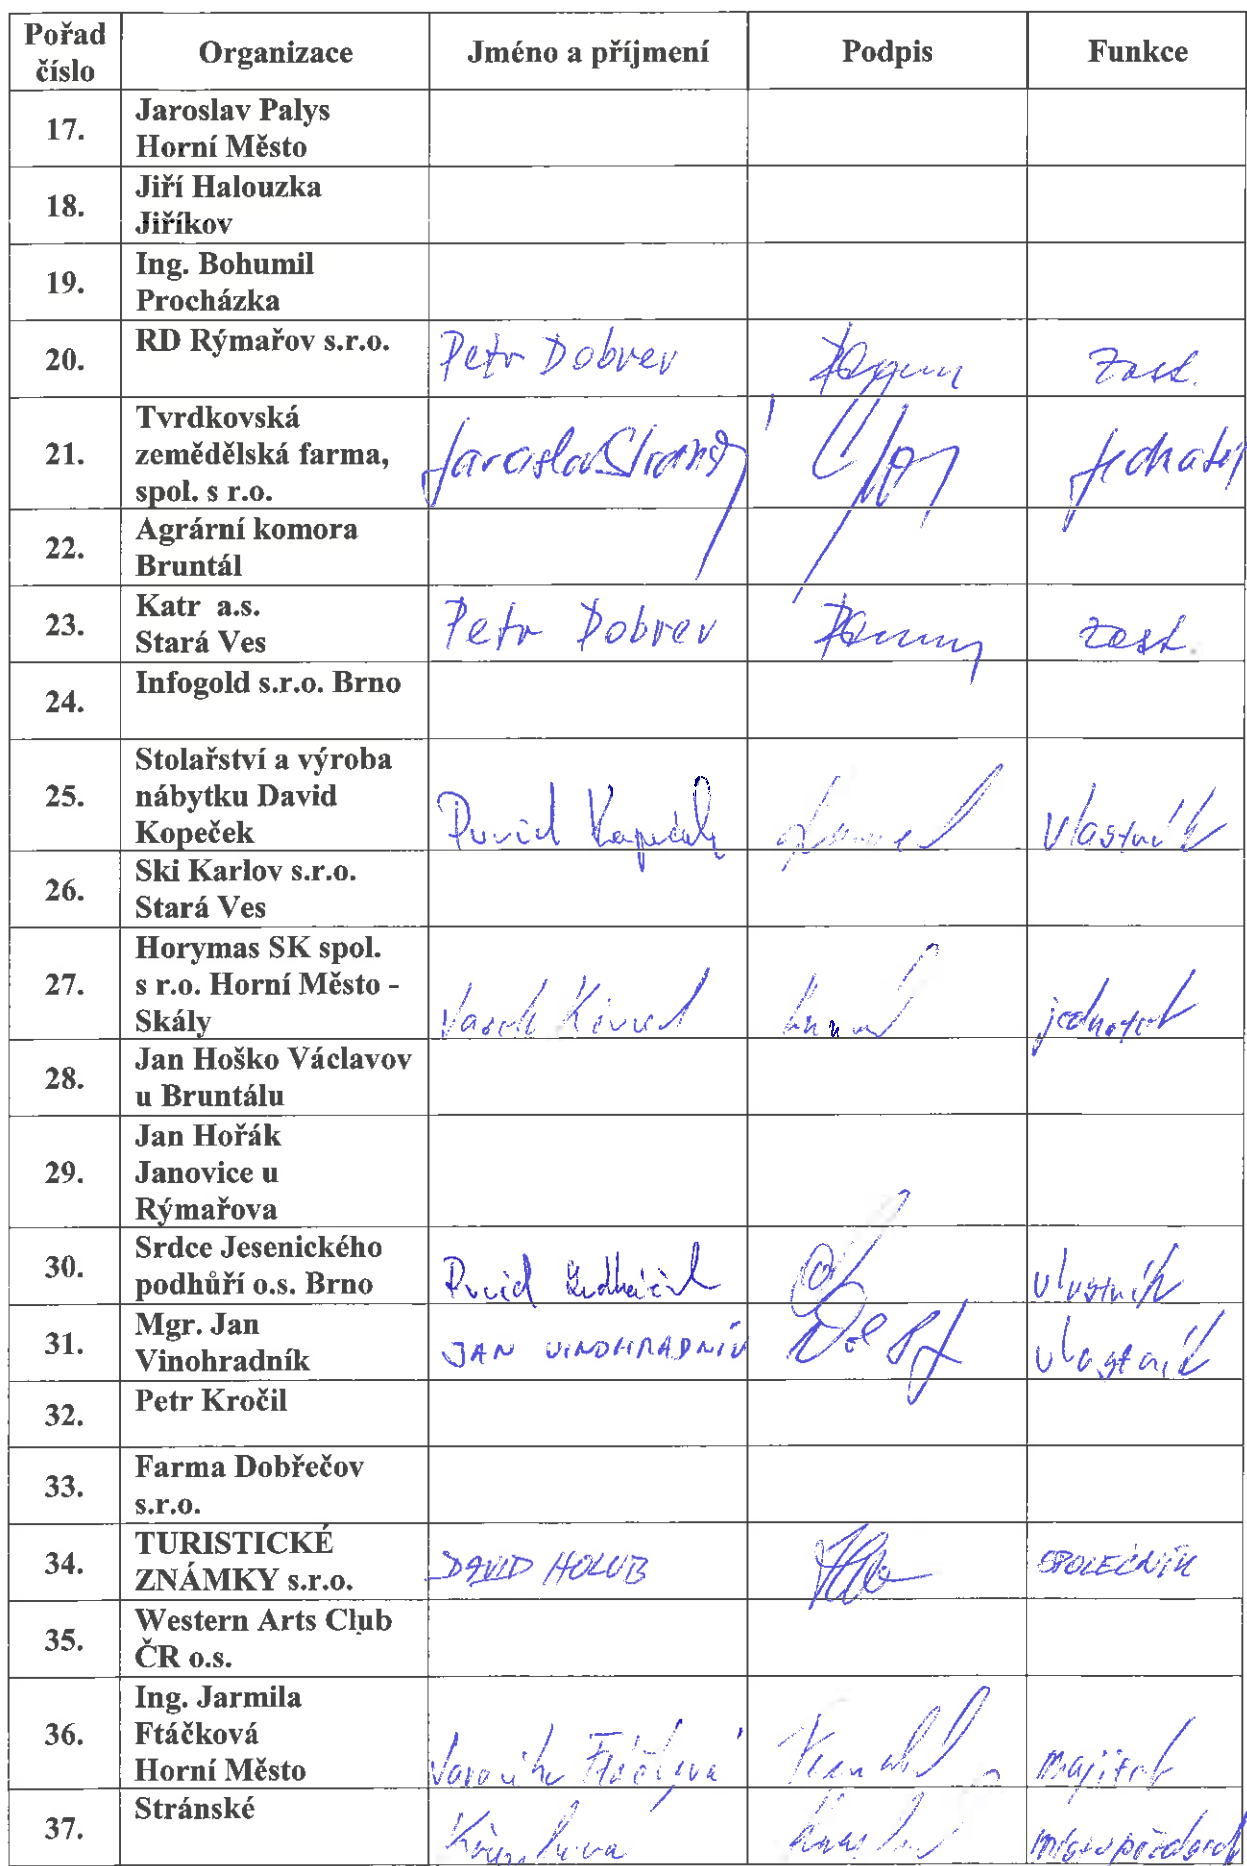 Pořad číslo | Organizace | Jméno a příjmení | Podpis | Funkce
17. | Jaroslav Palys
Horní Město
18. | Jiří Halouzka
Jiříkov
19. | Ing. Bohumil
Procházka
20. | RD Rýmařov s.r.o. | Petr Dobrev | | zast.
21. | Tvrdkovská
zemědělská farma,
spol. s r.o. | Jaroslav | | jednatel
22. | Agrární komora
Bruntál
23. | Katr a.s.
Stará Ves | Petr Dobrev | | zast.
24. | Infogold s.r.o. Brno
25. | Stolařství a výroba
nábytku David
Kopeček | David Kopeček | | vlastník
26. | Ski Karlov s.r.o.
Stará Ves
27. | Horymas SK spol.
s r.o. Horní Město -
Skály | | | jednatel
28. | Jan Hoško Václavov
u Bruntálu
29. | Jan Hořák
Janovice u
Rýmařova
30. | Srdce Jesenického
podhůří o.s. Brno | David | | vlastník
31. | Mgr. Jan
Vinohradník | JAN VINOHRADNÍK | | vlastník
32. | Petr Kročil
33. | Farma Dobřečov
s.r.o.
34. | TURISTICKÉ
ZNÁMKY s.r.o. | DAVID HOLUB | | SPOLEČNÍK
35. | Western Arts Club
ČR o.s.
36. | Ing. Jarmila
Ftáčková
Horní Město | | | majitel
37. | Stránské